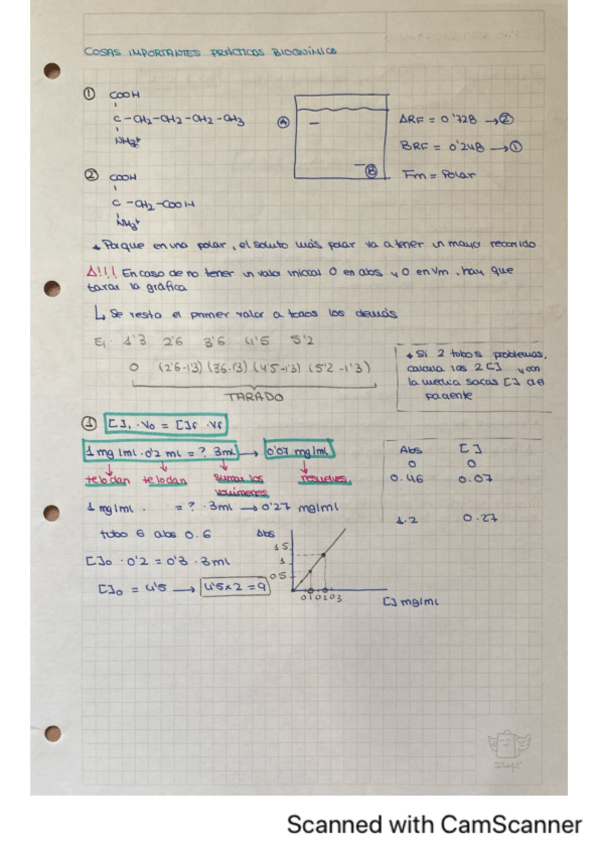 COSAS IMPORTANTES PRÁCTICAS BIOQUÍMICA
① COOH
C-CH2-CH2-CH2-CH3
NH3+
② COOH
C-CH2-COOH
NH3+
Ⓐ
Ⓑ
ARF = 0'728 → ②
BRF = 0'248 → ①
Fm = Polar
* Porque en una polar, el soluto más polar va a tener un mayor recorrido
Δ!!! En caso de no tener un valor inicial 0 en abs y 0 en Vm, hay que
tarar la gráfica
↳ Se resta el primer valor a todos los demás
Ej. 1'3 2'6 3'6 4'5 5'2
0 (2'6-1'3) (3'6-1'3) (4'5-1'3) (5'2-1'3)
TARADO
* Si 2 tubos problemas,
calcula las 2 [ ] y con
la media sacas [ ] del
paciente
① [ ]i · Vo = [ ]f · Vf
1 mg/ml · 0'2 ml = ? · 3ml → 0'07 mg/ml
te lo dan te lo dan sumar los volúmenes resuelves
1 mg/ml · = ? · 3ml → 0'27 mg/ml
Abs [ ]
0 0
0.46 0.07
1.2 0.27
tubo 6 abs 0.6
[ ]o · 0'2 = 0'3 · 3ml
[ ]o = 4'5 → 4'5 x 2 = 9
Abs
1.5
1
0.5
0.1 0.2 0.3
[ ] mg/ml
Scanned with CamScanner